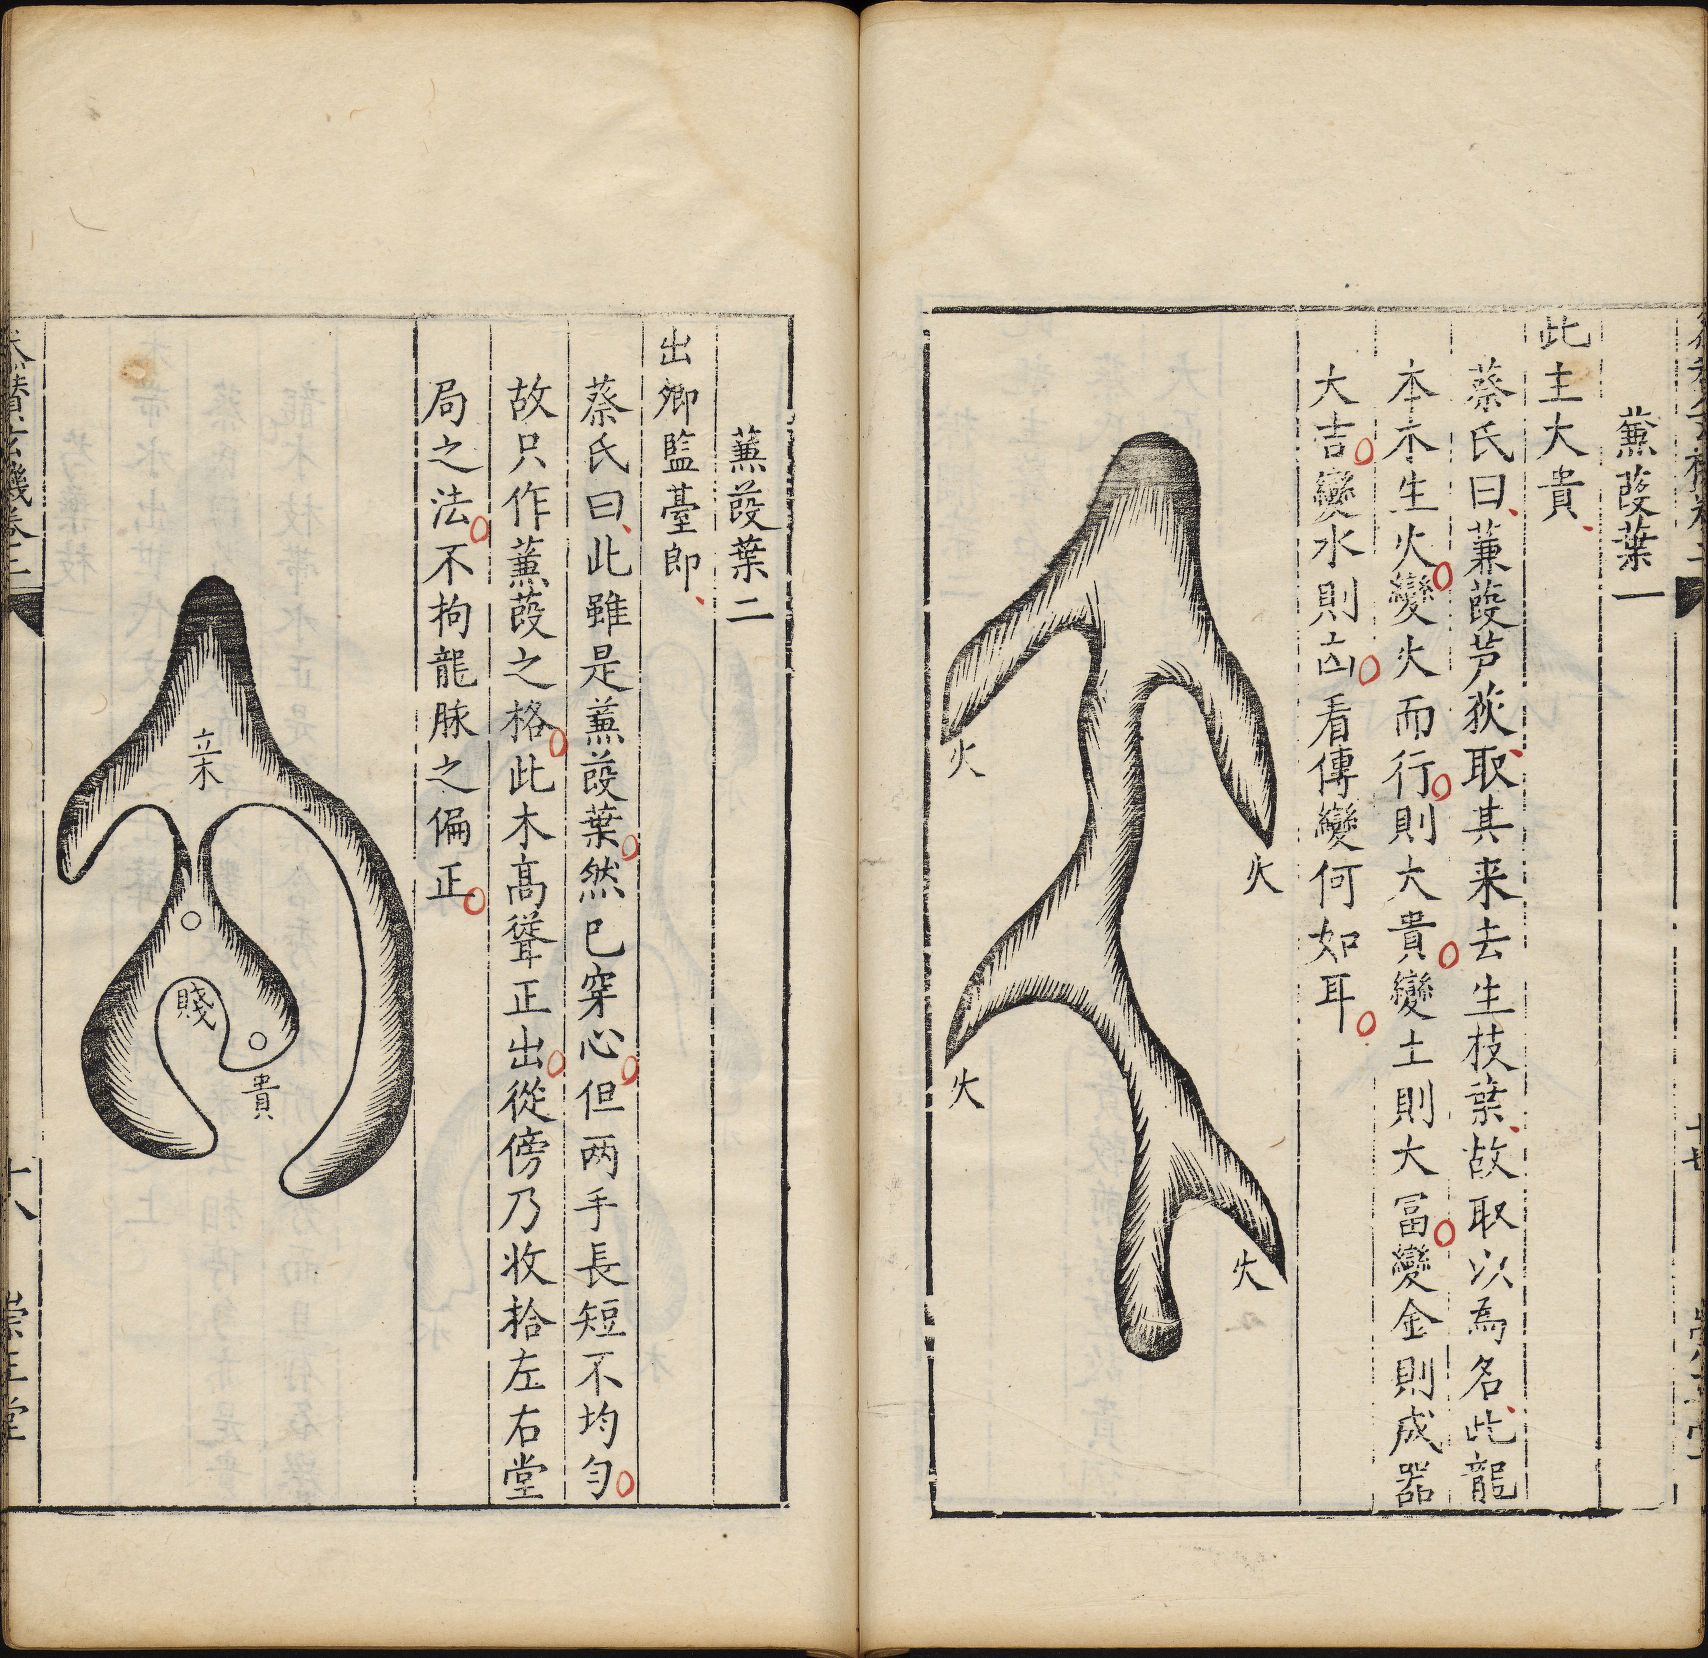 蒹葭葉一
此主大貴
蔡氏曰蒹葭芦荻取其来去生枝葉故取以為名此龍
本木生火變火而行則大貴變土則大冨變金則成器
大吉變水則凶看傳變何如耳
火
火
火
火
十七
蒹葭葉二
出卿監臺郎
蔡氏曰此雖是蒹葭葉然已穿心但两手長短不均匀
故只作蒹葭之格此木髙聳正出從傍乃收拾左右堂
局之法不拘龍脉之偏正
立木
賤
貴
十八